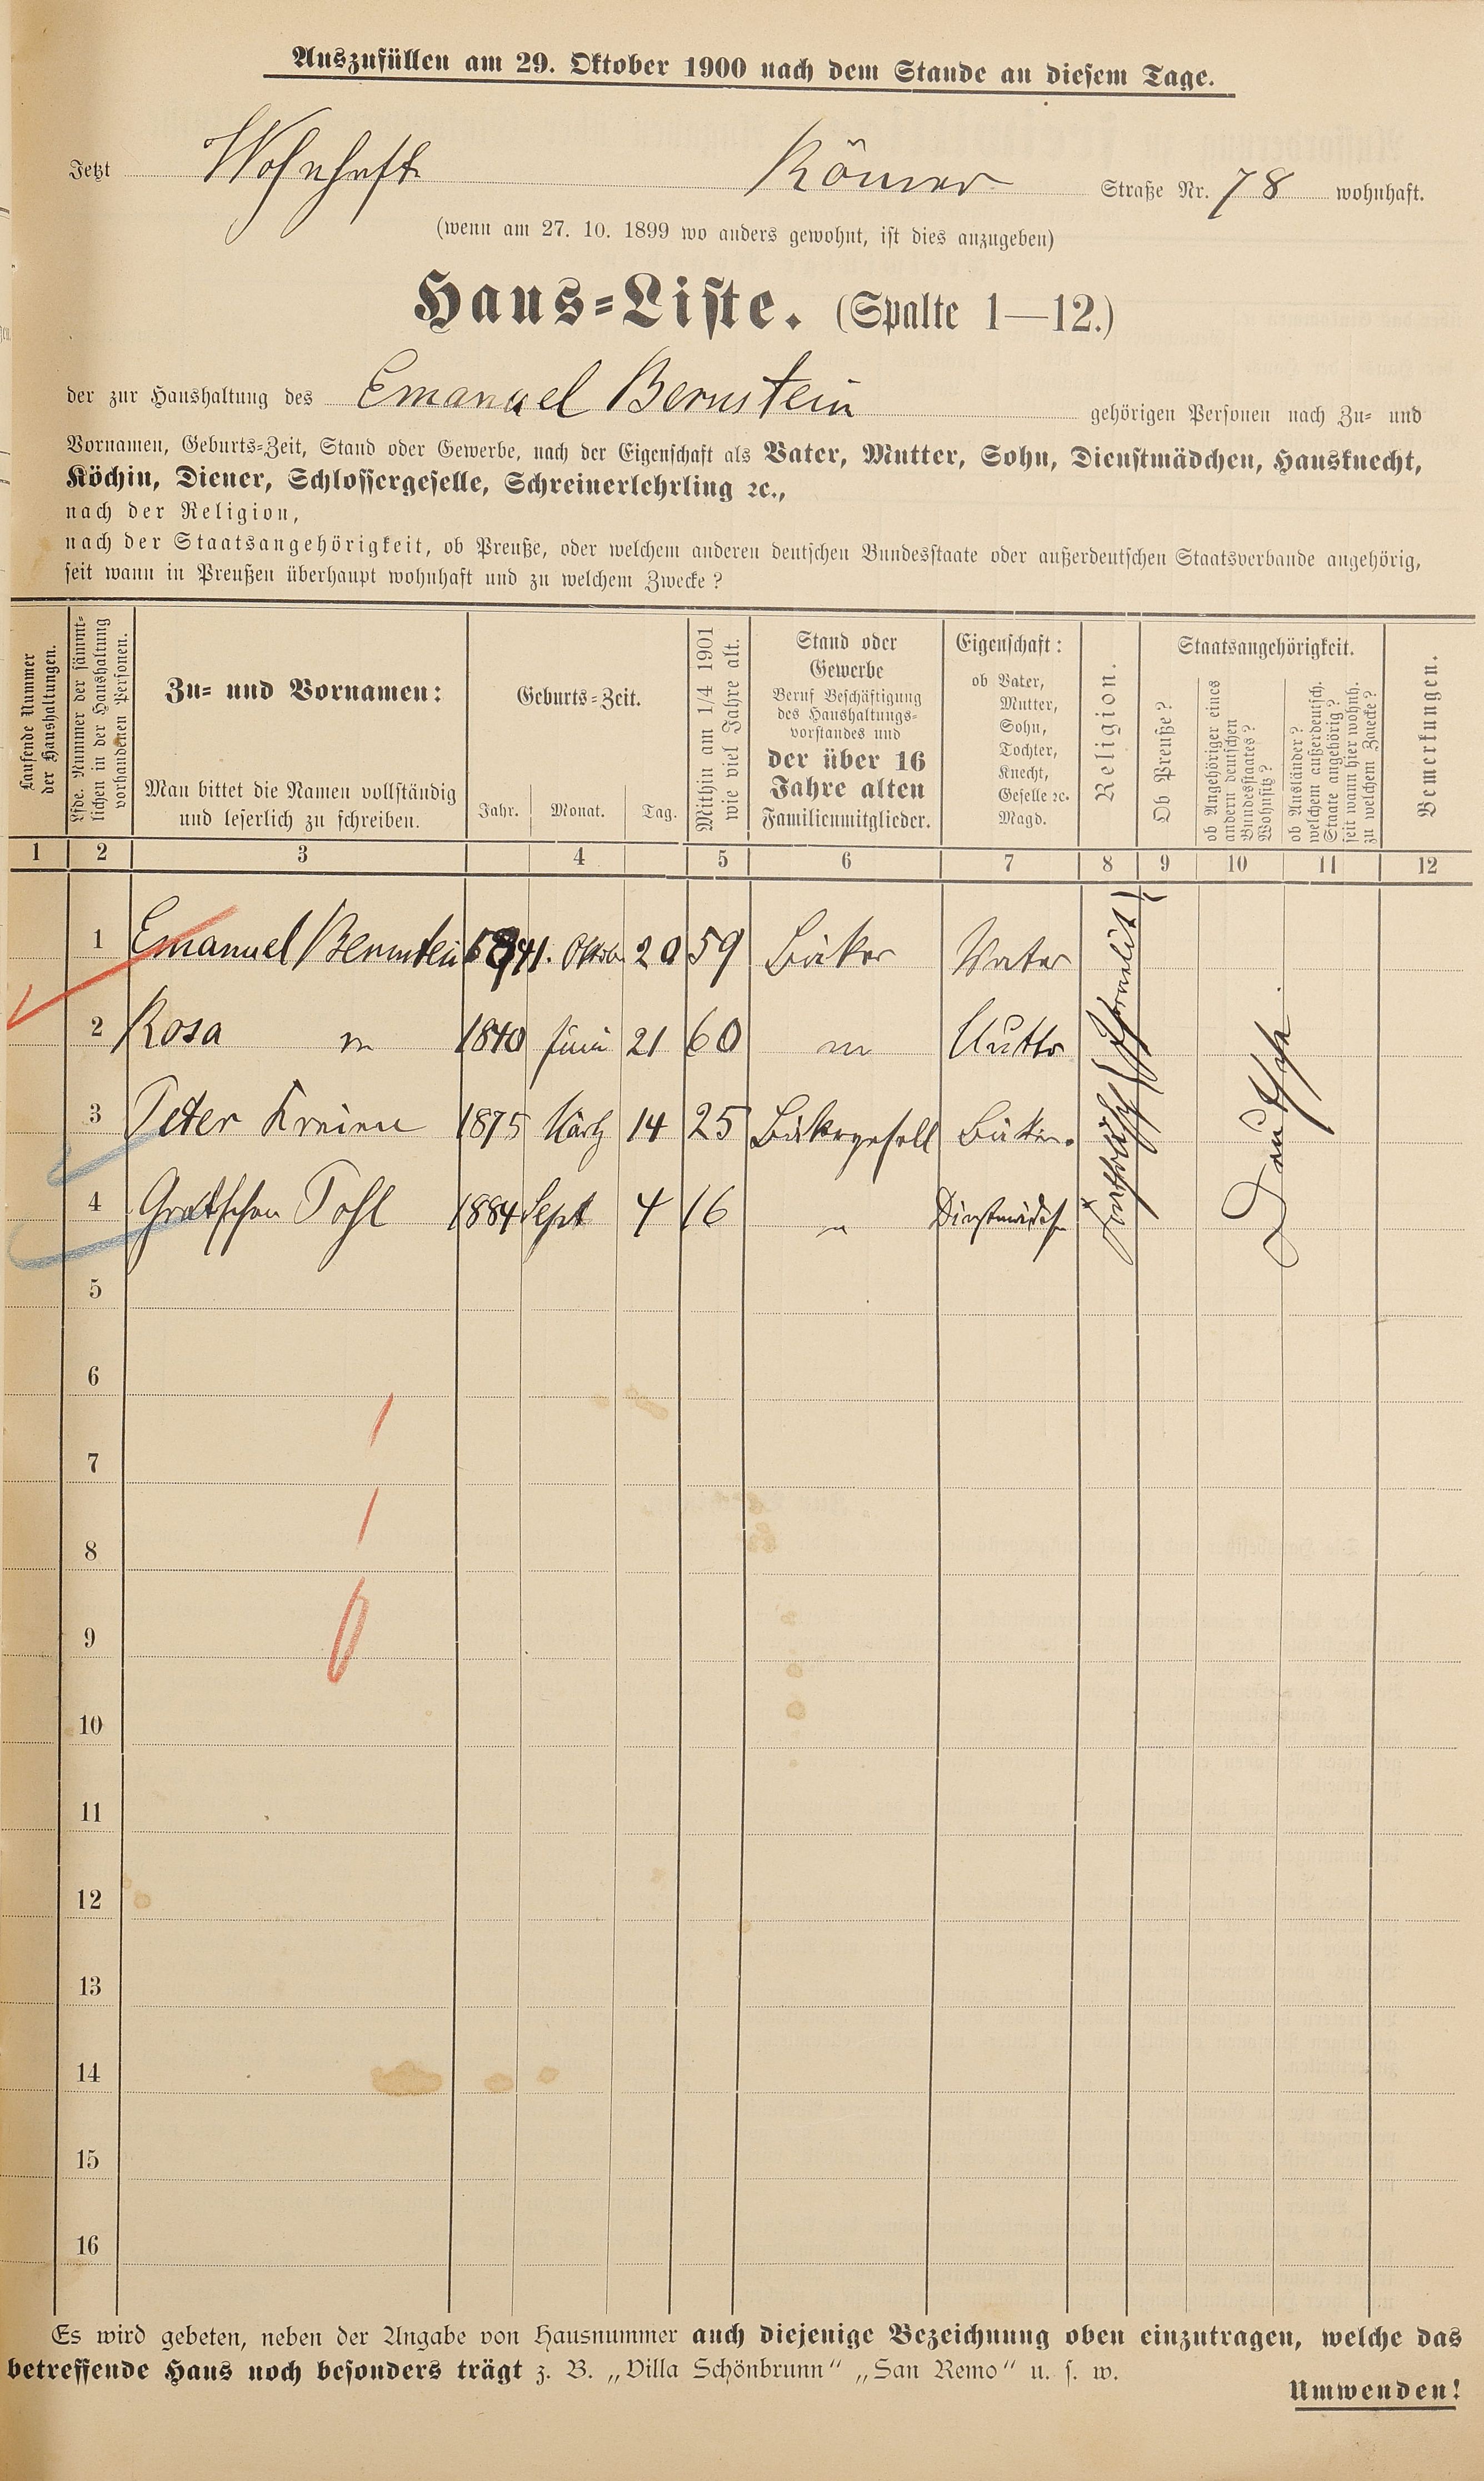 Auszufüllen am 29. Oktober 1900 nach dem Stande an diesem Tage.
Jetzt Wohnhaft Römer Straße Nr. 78 wohnhaft.
(wenn am 27. 10. 1899 wo anders gewohnt, ist dies anzugeben)
Haus-Liste. (Spalte 1—12.)
der zur Haushaltung des Emanuel Bernstein gehörigen Personen nach Zu- und
Vornamen, Geburts-Zeit, Stand oder Gewerbe, nach der Eigenschaft als Vater, Mutter, Sohn, Dienstmädchen, Hausknecht,
Köchin, Diener, Schlossergeselle, Schreinerlehrling ꝛc.,
nach der Religion,
nach der Staatsangehörigkeit, ob Preuße, oder welchem anderen deutschen Bundesstaate oder außerdeutschen Staatsverbande angehörig,
seit wann in Preußen überhaupt wohnhaft und zu welchem Zwecke?
Laufende Nummer
der Haushaltungen.
Lfde. Nummer der sämmt-
lichen in der Haushaltung
vorhandenen Personen.
Zu- und Vornamen:
Man bittet die Namen vollständig
und leserlich zu schreiben.
Geburts-Zeit.
Jahr. Monat. Tag.
Mithin am 1/4 1901
wie viel Jahre alt.
Stand oder
Gewerbe
Beruf Beschäftigung
des Haushaltungs-
vorstandes und
der über 16
Jahre alten
Familienmitglieder.
Eigenschaft:
ob Vater,
Mutter,
Sohn,
Tochter,
Knecht,
Geselle ꝛc.
Magd.
Religion.
Staatsangehörigkeit.
Ob Preuße?
ob Angehöriger eines
andern deutschen
Bundesstaates?
Wohnsitz?
ob Ausländer?
welchem außerdeutsch.
Staate angehörig?
seit wann hier wohnh.
zu welchem Zwecke?
Bemerkungen.
1 2 3 4 5 6 7 8 9 10 11 12
1 Emanuel Bernstein 1841. Oktob 20 59 Bäker Vater
2 Rosa " 1840 Juni 21 60 " Mutter
3 Peter 1875 März 14 25 Bäkergesell
4 Gretchen Pohl 1884 Sept 4 16 " Dienstmädch
Israelit
Katholisch
Deutsche
5
6
7
8
9
10
11
12
13
14
15
16
Es wird gebeten, neben der Angabe von Hausnummer auch diejenige Bezeichnung oben einzutragen, welche das
betreffende Haus noch besonders trägt z. B. „Villa Schönbrunn“ „San Remo“ u. s. w.
Umwenden!